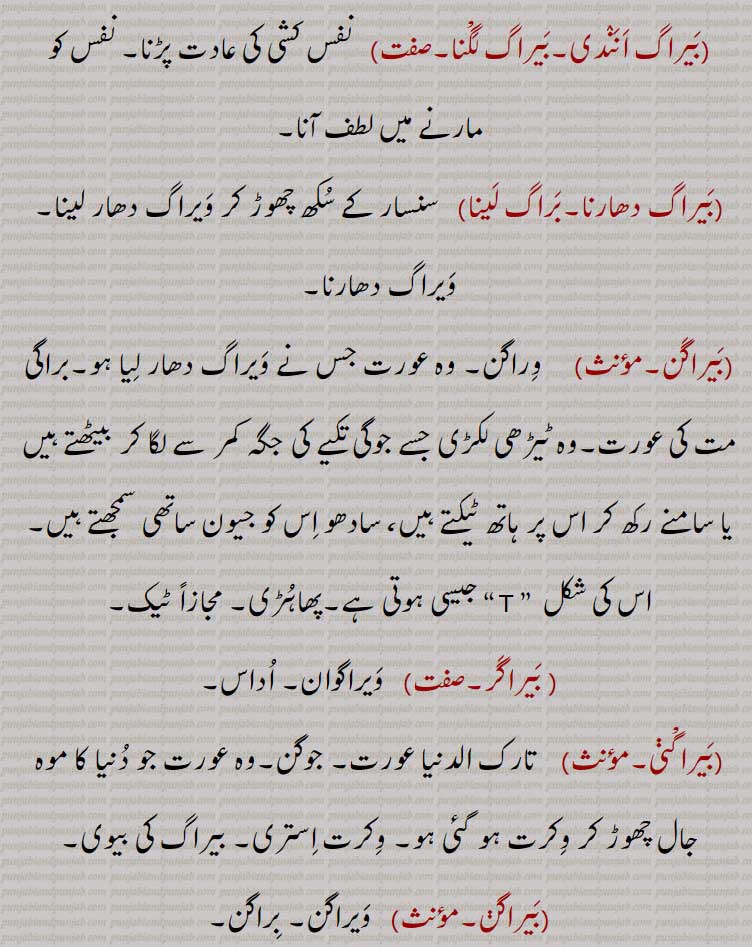 (بَیراگ اَنَنْدی۔بَیراگ لَگْنا۔صفت) نفس کشی کی عادت پڑنا۔ نفس کو
مارنے میں لطف آنا۔
(بَیراگ دھارنا۔بَراگ لَینا) سنسار کے سُکھ چھوڑ کر وَیراگ دھار لینا۔
وَیراگ دھارنا۔
(بَیراگَن۔مؤنث) وِراگن۔ وہ عورت جس نے وَیراگ دھار لِیا ہو۔براگی
مت کی عورت۔وہ ٹیڑھی لکڑی جسے جوگی تکیے کی جگہ کمر سے لگا کر بیٹھتے ہیں
یا سامنے رکھ کر اس پر ہاتھ ٹیکتے ہیں، سادھو اِس کو جیون ساتھی سمجھتے ہیں۔
اس کی شکل ”T“ جیسی ہوتی ہے۔پھاہُڑی۔ مجازاً ٹیک۔
( بَیراگَر۔صفت) وَیراگوان۔ اُداس۔
(بَیراگْنݨی۔مؤنث) تارک الدنیا عورت۔ جوگن۔وہ عورت جو دُنیا کا موہ
جال چھوڑ کر وِکرت ہو گئی ہو۔ وِکرت اِستری۔ بیراگ کی بیوی۔
(بَیراگݨ۔مؤنث) وَیراگن۔ بِراگن۔